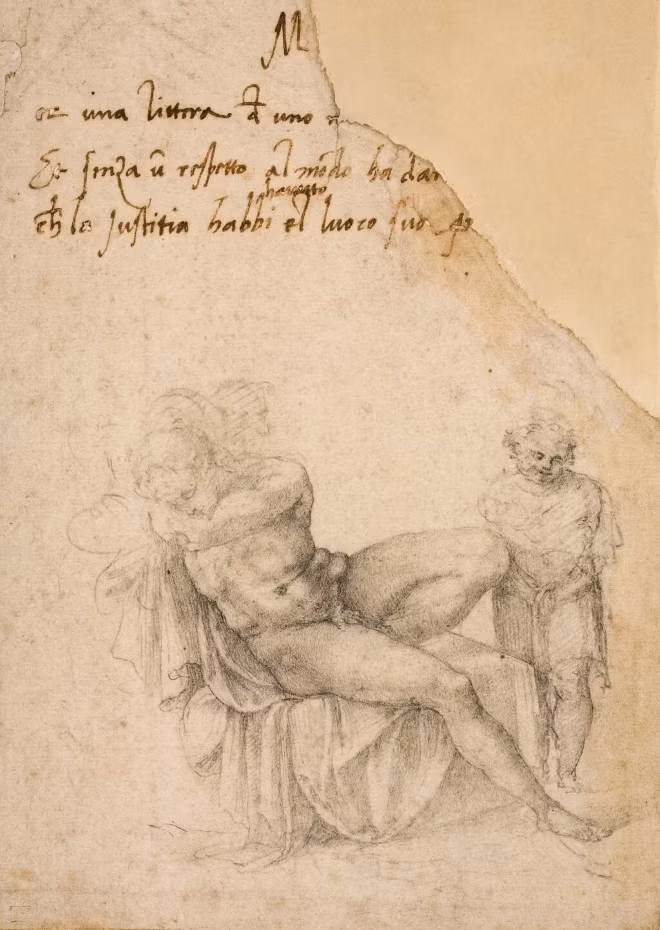 M
una littera uno
Et senza respetto al modo ha dar
justitia habbi el luoco suo